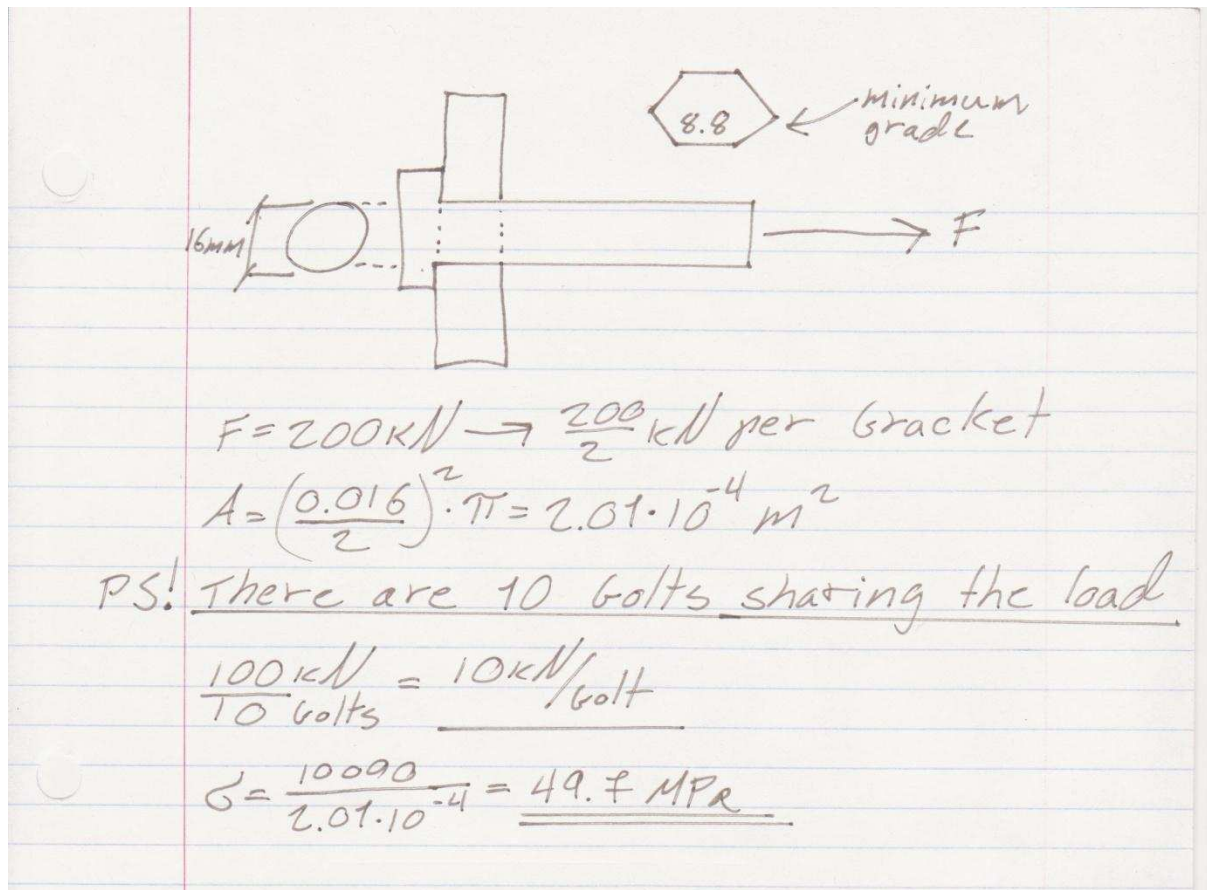 minimum
grade
8.8
16mm
F
F = 200kN → 200/2 kN per bracket
A = (0.016/2)² · π = 2.01 · 10⁻⁴ m²
PS! There are 10 bolts sharing the load
100kN/10 bolts = 10kN/bolt
σ = 10000/2.01·10⁻⁴ = 49.7 MPa